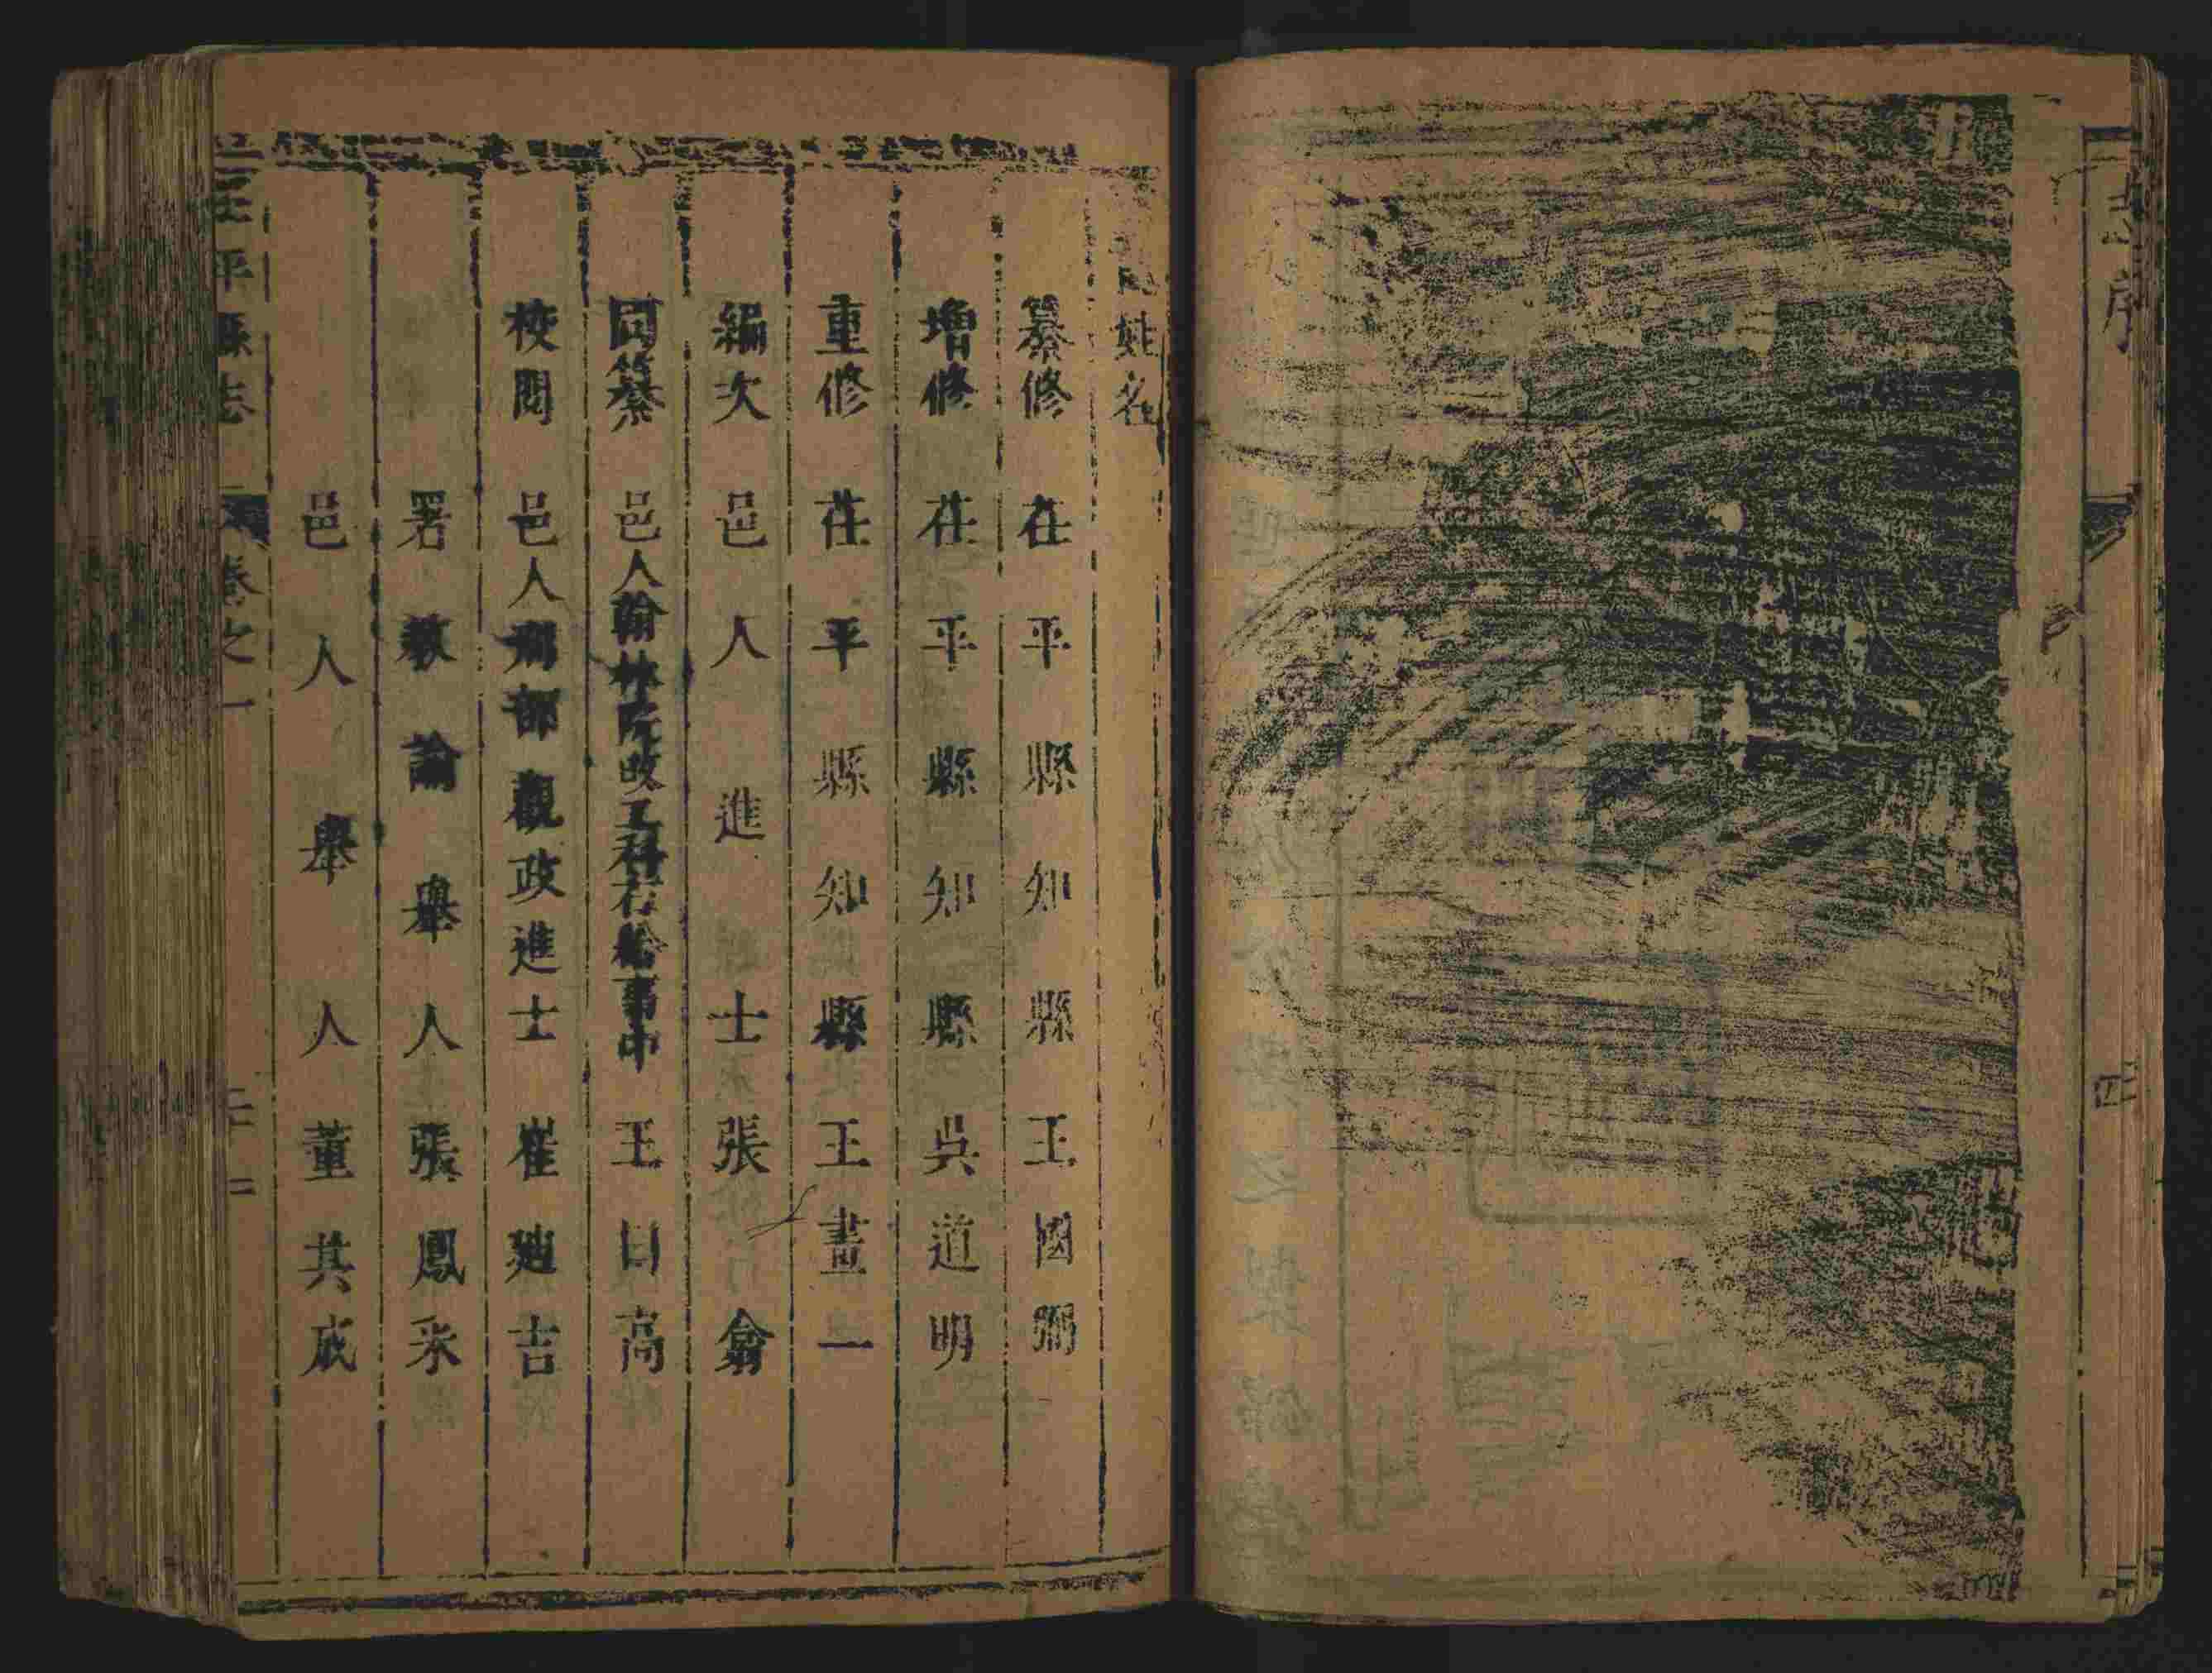 志序
四
姓名
纂修 茌平縣知縣王國弼
增修 茌平縣知縣吳道明
重修 茌平縣知縣王畫一
編次 邑人進士張翕
同纂 邑人翰林院改工科右給事中王曰高
校閱 邑人刑部觀政進士崔廸吉
署教諭舉人張鳳采
邑人舉人董共成
茌平縣志 卷之一